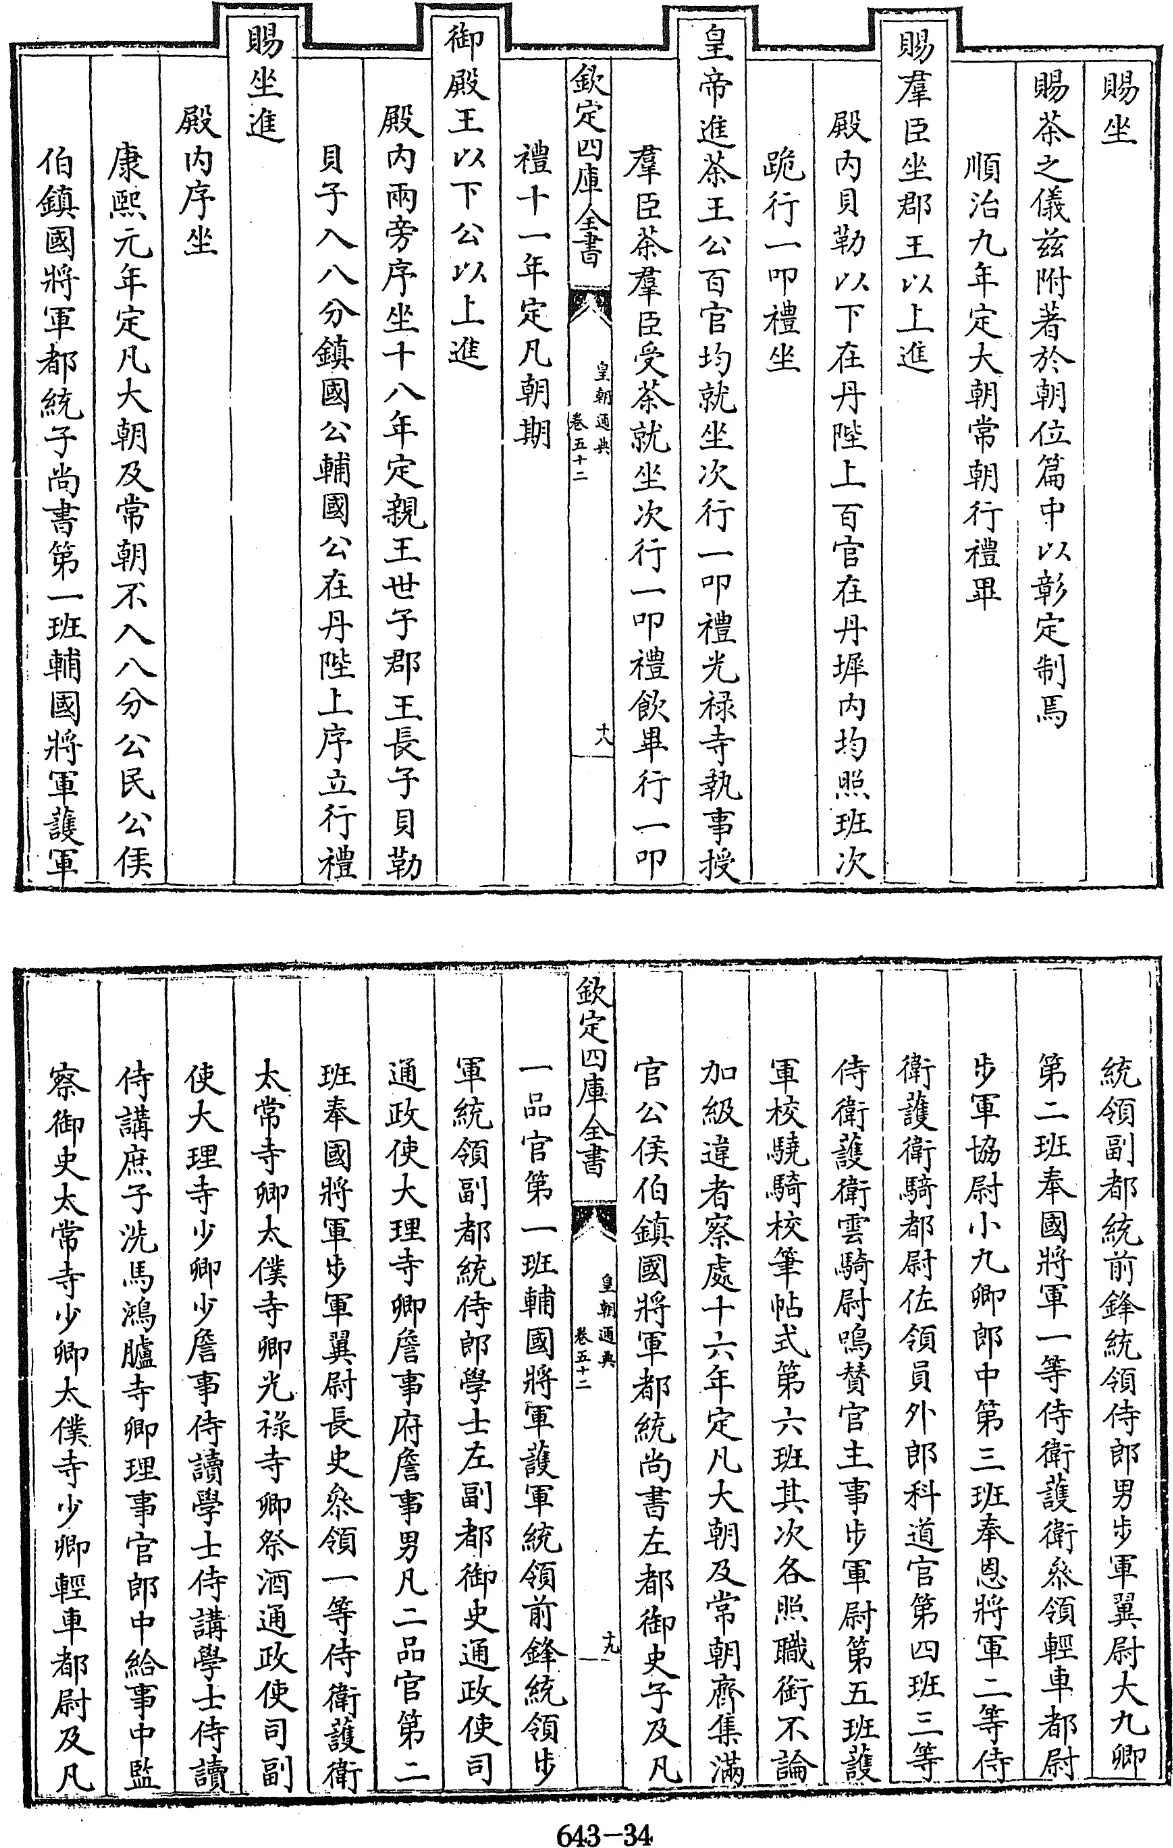 賜坐
賜茶之儀兹附著於朝位篇中以彰定制焉
順治九年定大朝常朝行禮畢
賜羣臣坐郡王以上進
殿内貝勒以下在丹陛上百官在丹墀内均照班次
跪行一叩禮坐
皇帝進茶王公百官均就坐次行一叩禮光禄寺執事授
羣臣茶羣臣受茶就坐次行一叩禮飲畢行一叩
欽定四庫全書
皇朝通典
卷五十二
十八
禮十一年定凡朝期
御殿王以下公以上進
殿内兩旁序坐十八年定親王世子郡王長子貝勒
貝子入八分鎮國公輔國公在丹陛上序立行禮
賜坐進
殿内序坐
康熙元年定凡大朝及常朝不入八分公民公侯
伯鎮國將軍都統子尚書第一班輔國將軍護軍
統領副都統前鋒統領侍郎男步軍翼尉大九卿
第二班奉國將軍一等侍衛護衛叅領輕車都尉
步軍協尉小九卿郎中第三班奉恩將軍二等侍
衛護衛騎都尉佐領員外郎科道官第四班三等
侍衛護衛雲騎尉鳴贊官主事步軍尉第五班護
軍校驍騎校筆帖式第六班其次各照職銜不論
加級違者察處十六年定凡大朝及常朝齊集滿
官公侯伯鎮國將軍都統尚書左都御史子及凡
欽定四庫全書
皇朝通典
卷五十二
十九
一品官第一班輔國將軍護軍統領前鋒統領步
軍統領副都統侍郎學士左副都御史通政使司
通政使大理寺卿詹事府詹事男凡二品官第二
班奉國將軍步軍翼尉長史叅領一等侍衛護衛
太常寺卿太僕寺卿光禄寺卿祭酒通政使司副
使大理寺少卿少詹事侍讀學士侍講學士侍讀
侍講庶子洗馬鴻臚寺卿理事官郎中給事中監
察御史太常寺少卿太僕寺少卿輕車都尉及凡
643-34